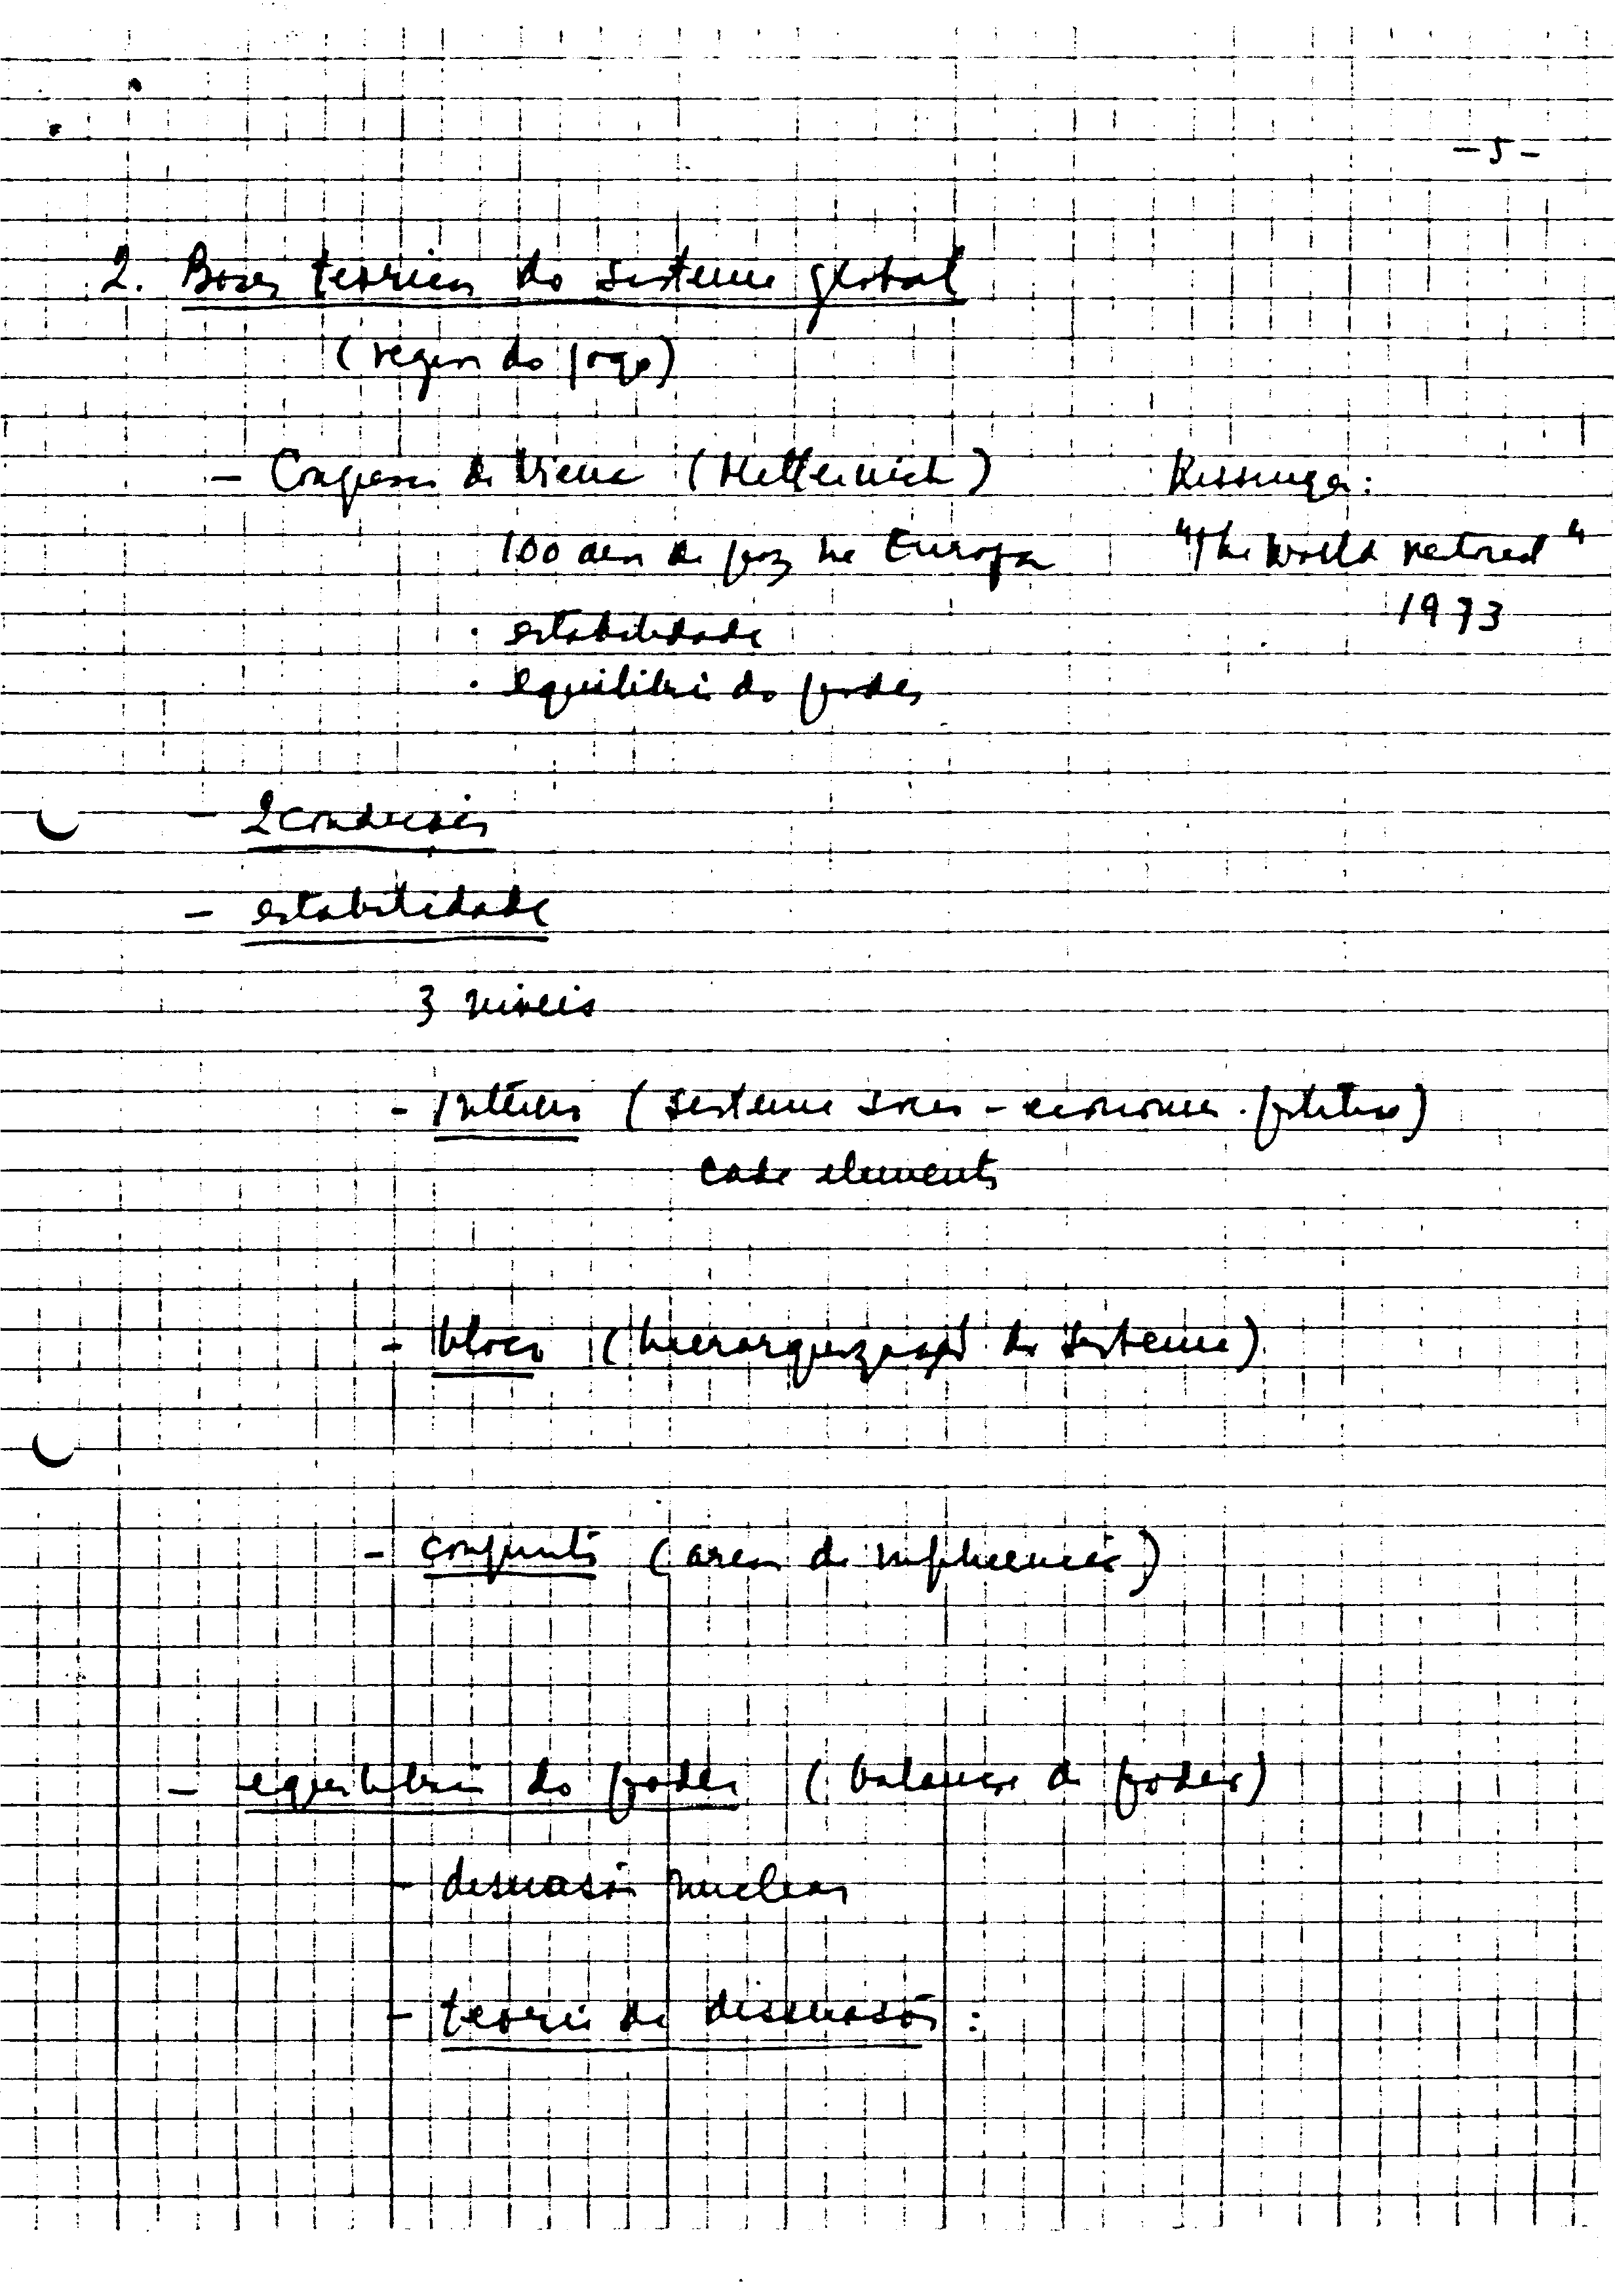 - 5 -
2. Bases teóricas do sistema global
(regras do jogo)
- Congresso de Viena (Metternich) Kissinger:
100 anos de paz na Europa "The World restored"
1973
· estabilidade
· equilíbrio do poder
- 2 condições
- estabilidade
3 níveis
- interno (sistema socio-economico-politico)
cada elemento
- bloco (hierarquização do sistema)
- conjunto (areas de influencia)
- equilíbrio do poder (balança de poder)
- dissuasão nuclear
- teoria da dissuasão: